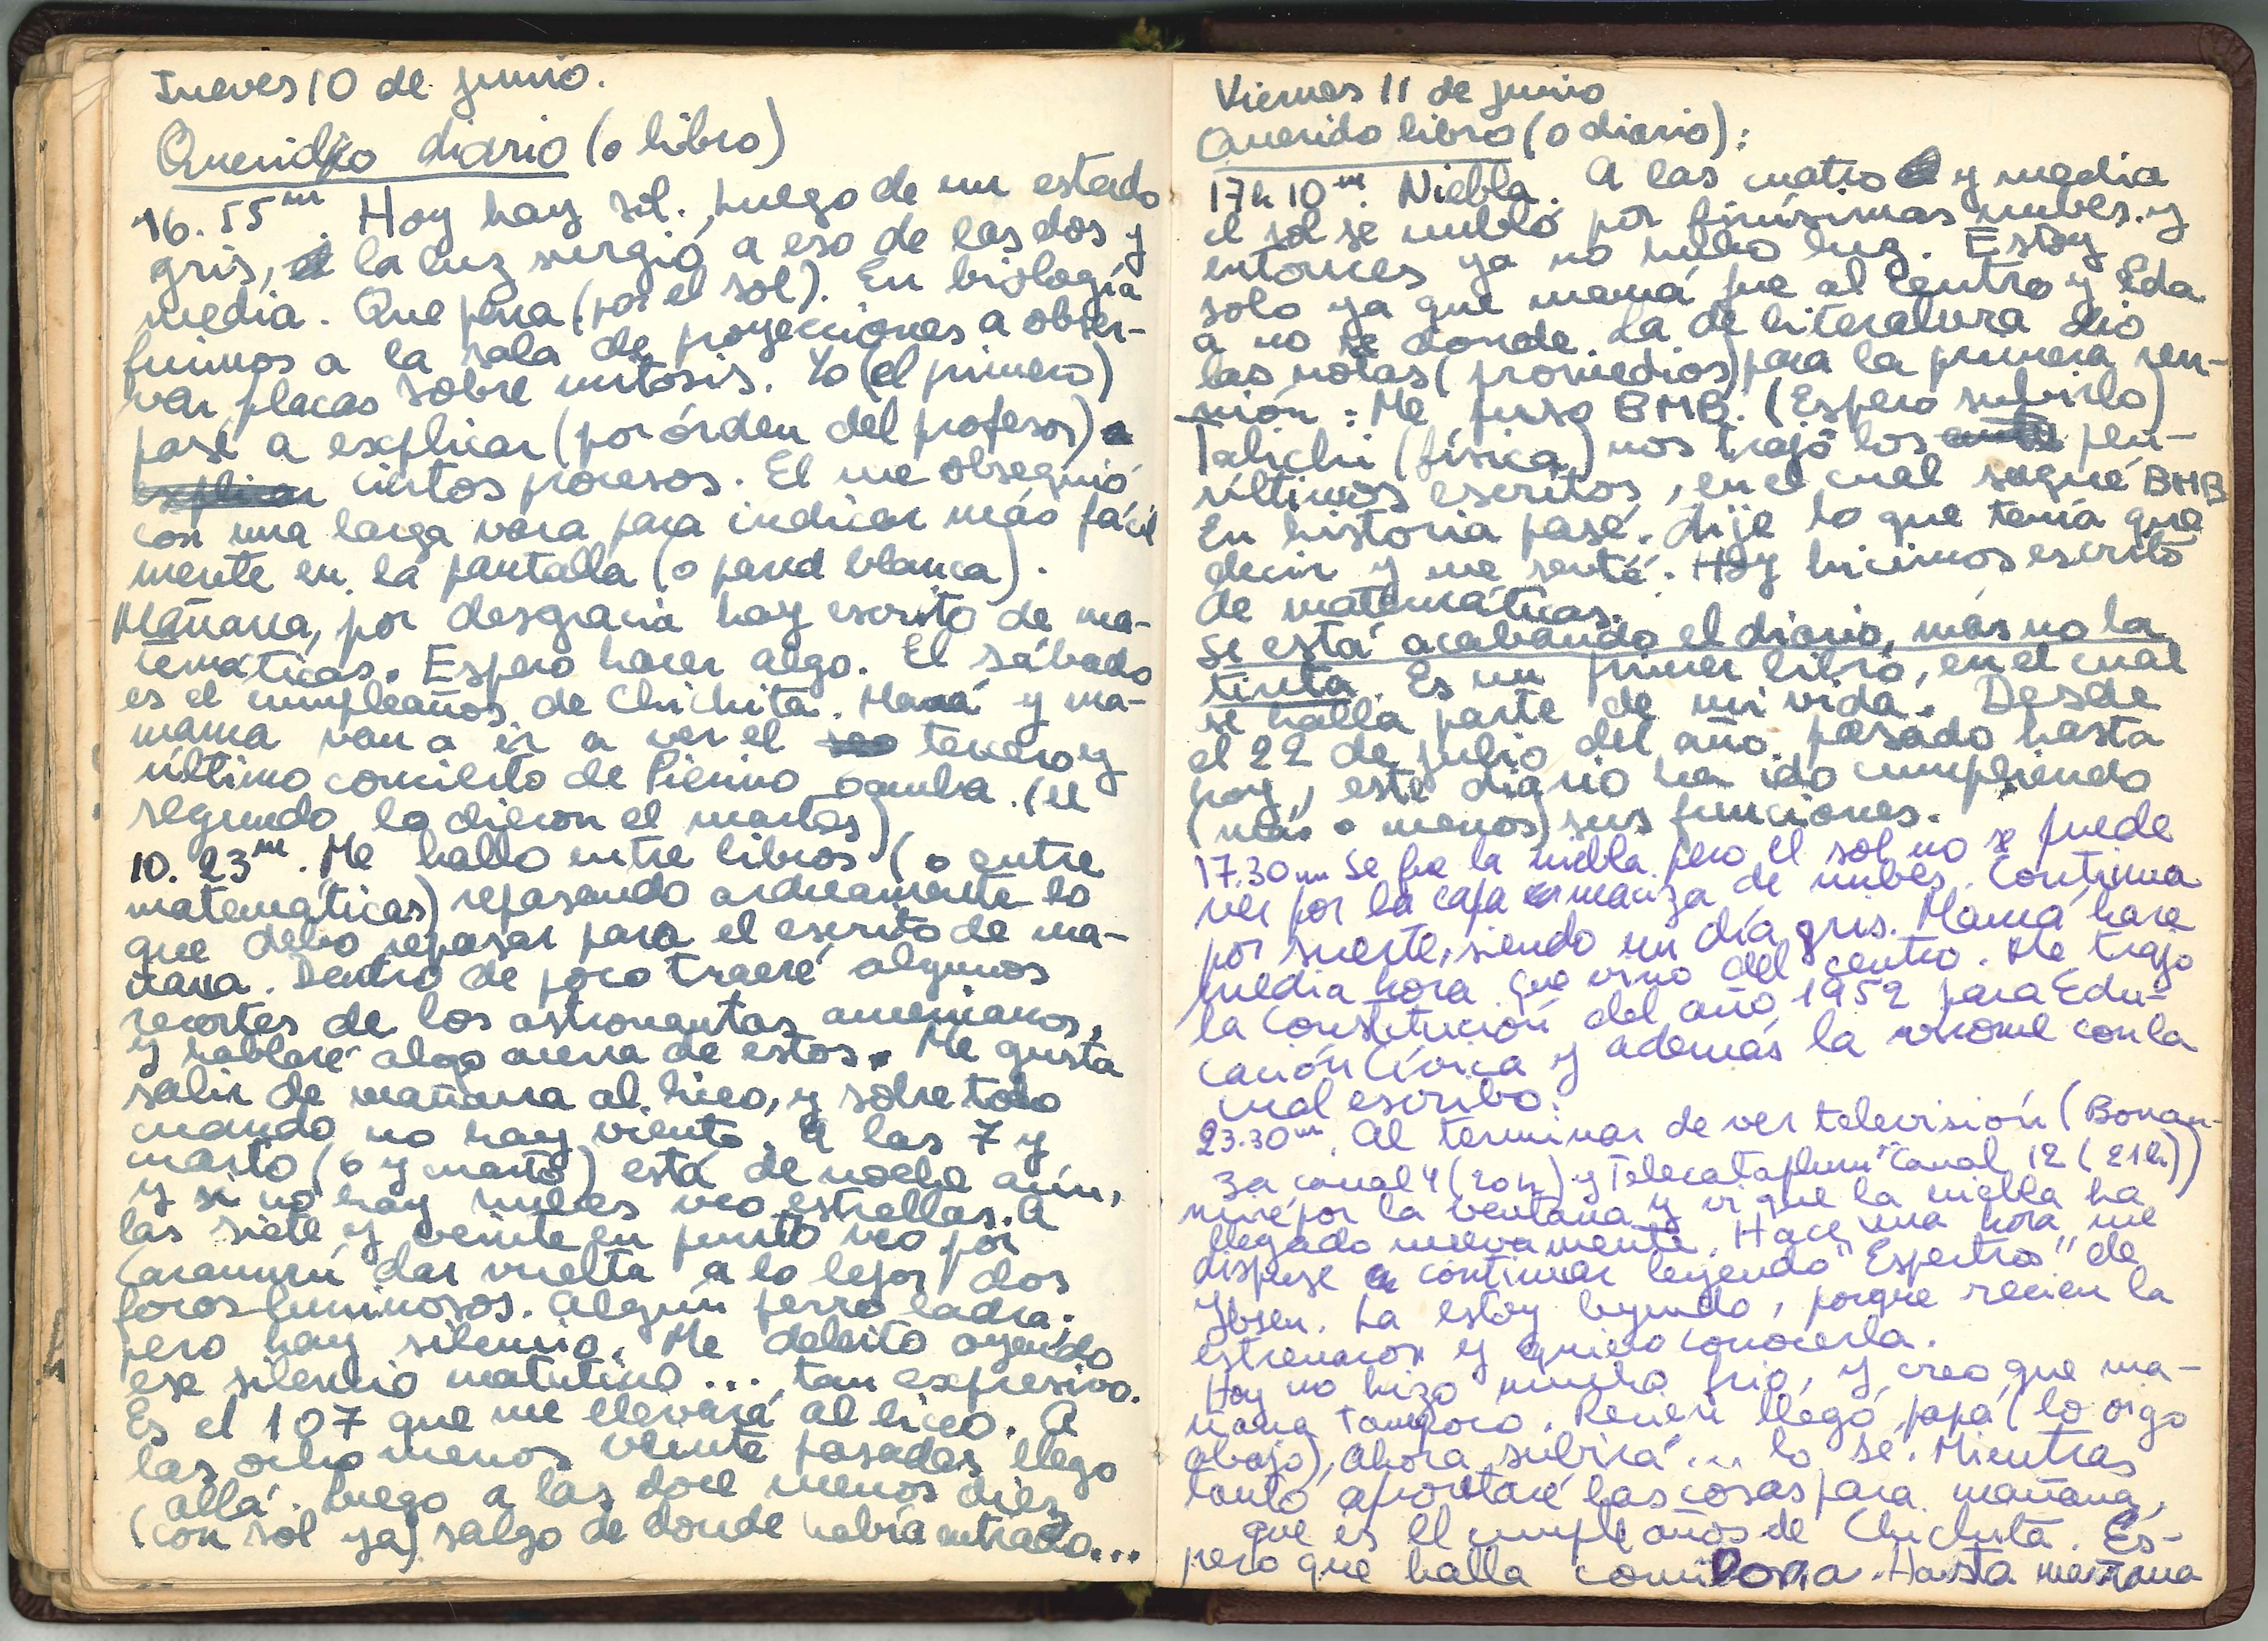 Jueves 10 de junio.
Querido diario (o libro)
16.55m. Hoy hay sol. Luego de un estado
gris, la luz surgió a eso de las dos y
media. Que pena (por el sol). En biología
fuimos a la sala de proyecciones a obser-
var placas sobre mitosis. Yo (el primero)
pasé a explicar (por órden del profesor) a
explicar ciertos procesos. El me obsequió
con una larga vara para indicar más fácil
mente en la pantalla (o pared blanca).
Mañana, por desgracia hay escrito de ma-
temáticas. Espero hacer algo. El sábado
es el cumpleaños de Chichita. Mamá y ma-
mama van a ir a ver el tercero y
último concierto de Pierino Gamba. (el
segundo lo dieron el martes)
10.23m. Me hallo entre libros (o entre
matemáticas) repasando arduamente lo
que debo repasar para el escrito de ma-
ñana. Dentro de poco traeré algunos
recortes de los astronautas americanos,
y hablaré algo acerca de estos. Me gusta
salir de mañana al liceo, y sobre todo
cuando no hay viento. A las 7 y
cuarto (6 y cuarto) está de noche aún,
y si no hay nubes veo estrellas. A
las siete y veinte en punto veo por
Caramurú dar vuelta a lo lejos dos
focos luminosos. Algún perro ladra.
pero hay silencio. Me deleito oyendo
ese silencio matutino ... tan expresivo.
Es el 107 que me llevará al liceo. A
las ocho menos veinte pasadas llego
allá. Luego a las doce menos diez
(con sol ya) salgo de donde había entrado...
Viernes 11 de junio
Querido libro (o diario):
17h 10m. Niebla. A las cuatro y media
el sol se nubló por finísimas nubes. y
entonces ya no hubo luz. Estoy
solo ya que mamá fue al centro y Eda
a no se donde. La de literatura dio
las notas (promedios) para la primera reu-
nión: Me puso BMB. (Espero subirlo)
Talichi (física) nos trajo los pen-
últimos escritos, en el cual saqué BMB
En historia pasé. dije lo que tenía que
decir y me senté. Hoy hicimos escrito
de matemáticas.
Se está acabando el diario, más no la
tinta. Es un primer libro, en el cual
se halla parte de mi vida. Desde
el 22 de julio del año pasado hasta
hoy, este diario ha ido cumpliendo
(más o menos) sus funciones.
17.30m Se fue la niebla pero el sol no se puede
ver por la capa cermanza de nubes. Continua
por suerte, siendo un día gris. Mamá hace
media hora que vino del centro. Me trajo
la Constitución del año 1952 para Edu-
cación Cívica y además la birome con la
cual escribo.
23.30m. Al terminar de ver televisión (Bonan-
za canal 4 (20h) y Telecataplum Canal 12 (21h))
miré por la ventana y vi que la niebla ha
llegado nuevamente. Hace una hora me
dispuse a continuar leyendo "Espectros" de
Ybsen. La estoy leyendo, porque recien la
estrenaron y quiero conocerla.
Hoy no hizo mucho frio, y creo que ma-
ñana tampoco. Recien llegó papá (lo oigo
abajo), ahora subirá ... lo sé. Mientras
tanto aprontaré las cosas para mañana,
que es el cumpleaños de Chichita. Es-
pero que halla comilona. Hasta mañana